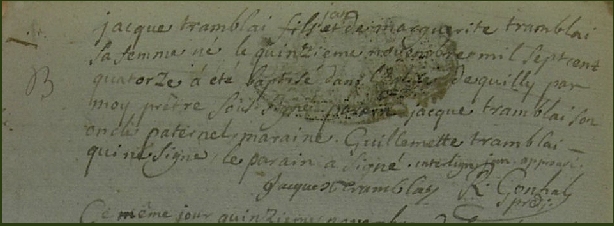 jacque tramblai fils jan et de marguerite tramblai
sa femme né le quinzieme novembre mil sept cent
quatorze a été baptisé dans de quilly par
moy prètre sous signé parain jacque tramblai son
oncle paternel maraine Guillemette tramblai
qui ne signe, le parain a signé. interligne jan approuvé
Jacques tramblay R. Gouhal
pr
Ce même jour quinzieme novembre
B